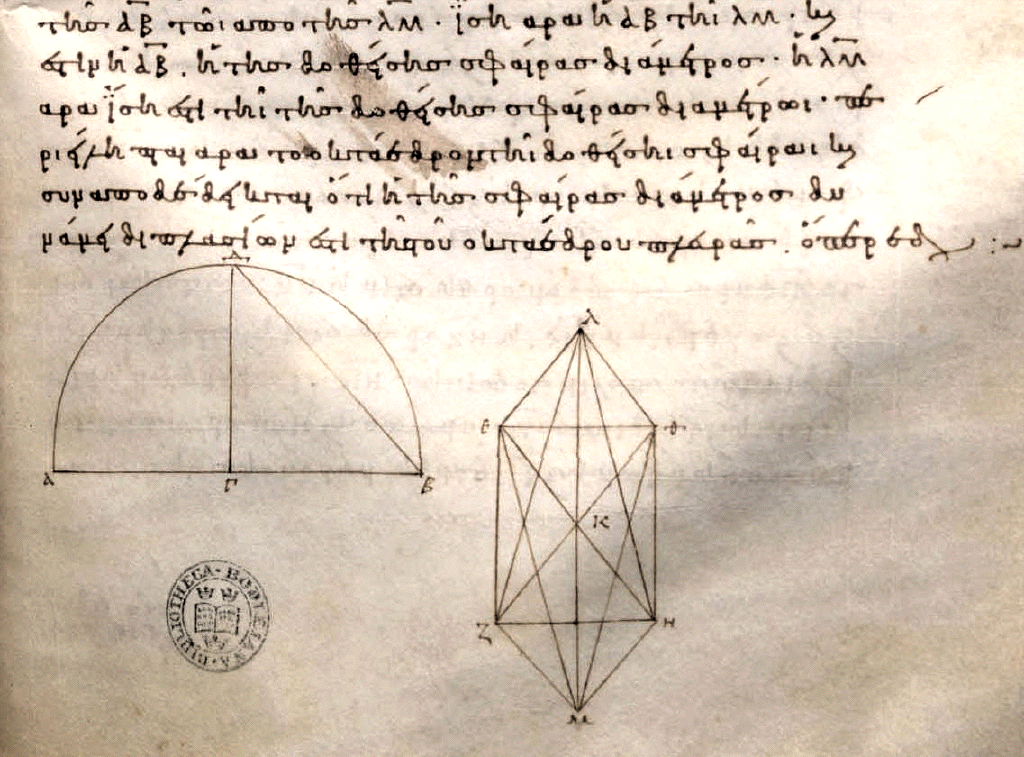 τῆς ΑΒ τῶι ἀπο τῆς ΛΜ · ἴση αρα ἡ ΑΒ τῆι ΛΜ · καί
ἐστιν ἡ ΑΒ . ἡ τῆς δοθείσης σφαίρας διάμετρος · ἡ ΛΜ
αρα ἴση ἐστὶ τῆι τῆς δοθείσης σφαίρας διαμέτρωι · πε
ριείληπται αρα το ὀκτάεδρον τῆι δοθείσηι σφαίραι καὶ
συναποδέδεικται ὅτι ἡ τῆς σφαίρας διάμετρος δυ
νάμει διπλασίων ἐστὶ τῆς τοῦ ὀκταέδρου πλευρᾶς . ὅπερ ἔδει :~
Δ
Λ
Ε Θ
Α Γ Β
Κ
Ζ Η
Μ
BIBLIOTHECA · BODLEIANA